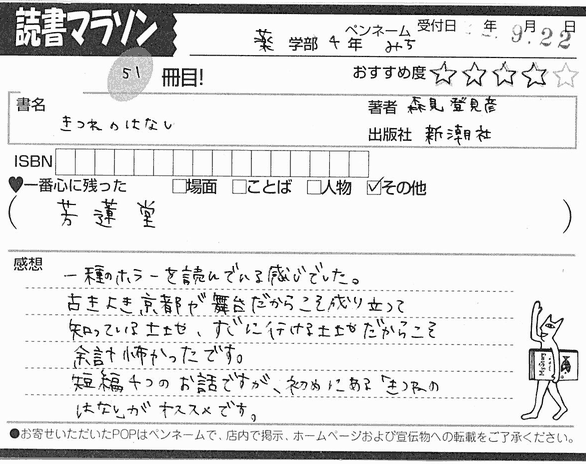 読書マラソン
薬 学部 4 年 ペンネーム みち 受付日 年 月 日 9.22
51 冊目! おすすめ度 ☆☆☆☆☆
書名 きつねのはなし
著者 森見登見彦
出版社 新潮社
ISBN
♥一番心に残った □場面 □ことば □人物 ☑その他
( 芳蓮堂 )
感想
一種のホラーを読んでいる感じでした。
古きよき京都が舞台だからこそ成り立って
知っている土地、すぐに行ける土地だからこそ
余計怖かったです。
短編4つのお話ですが、初めにある「きつねの
はなし」がオススメです。
●お寄せいただいたPOPはペンネームで、店内で掲示、ホームページおよび宣伝物への転載をご了承ください。